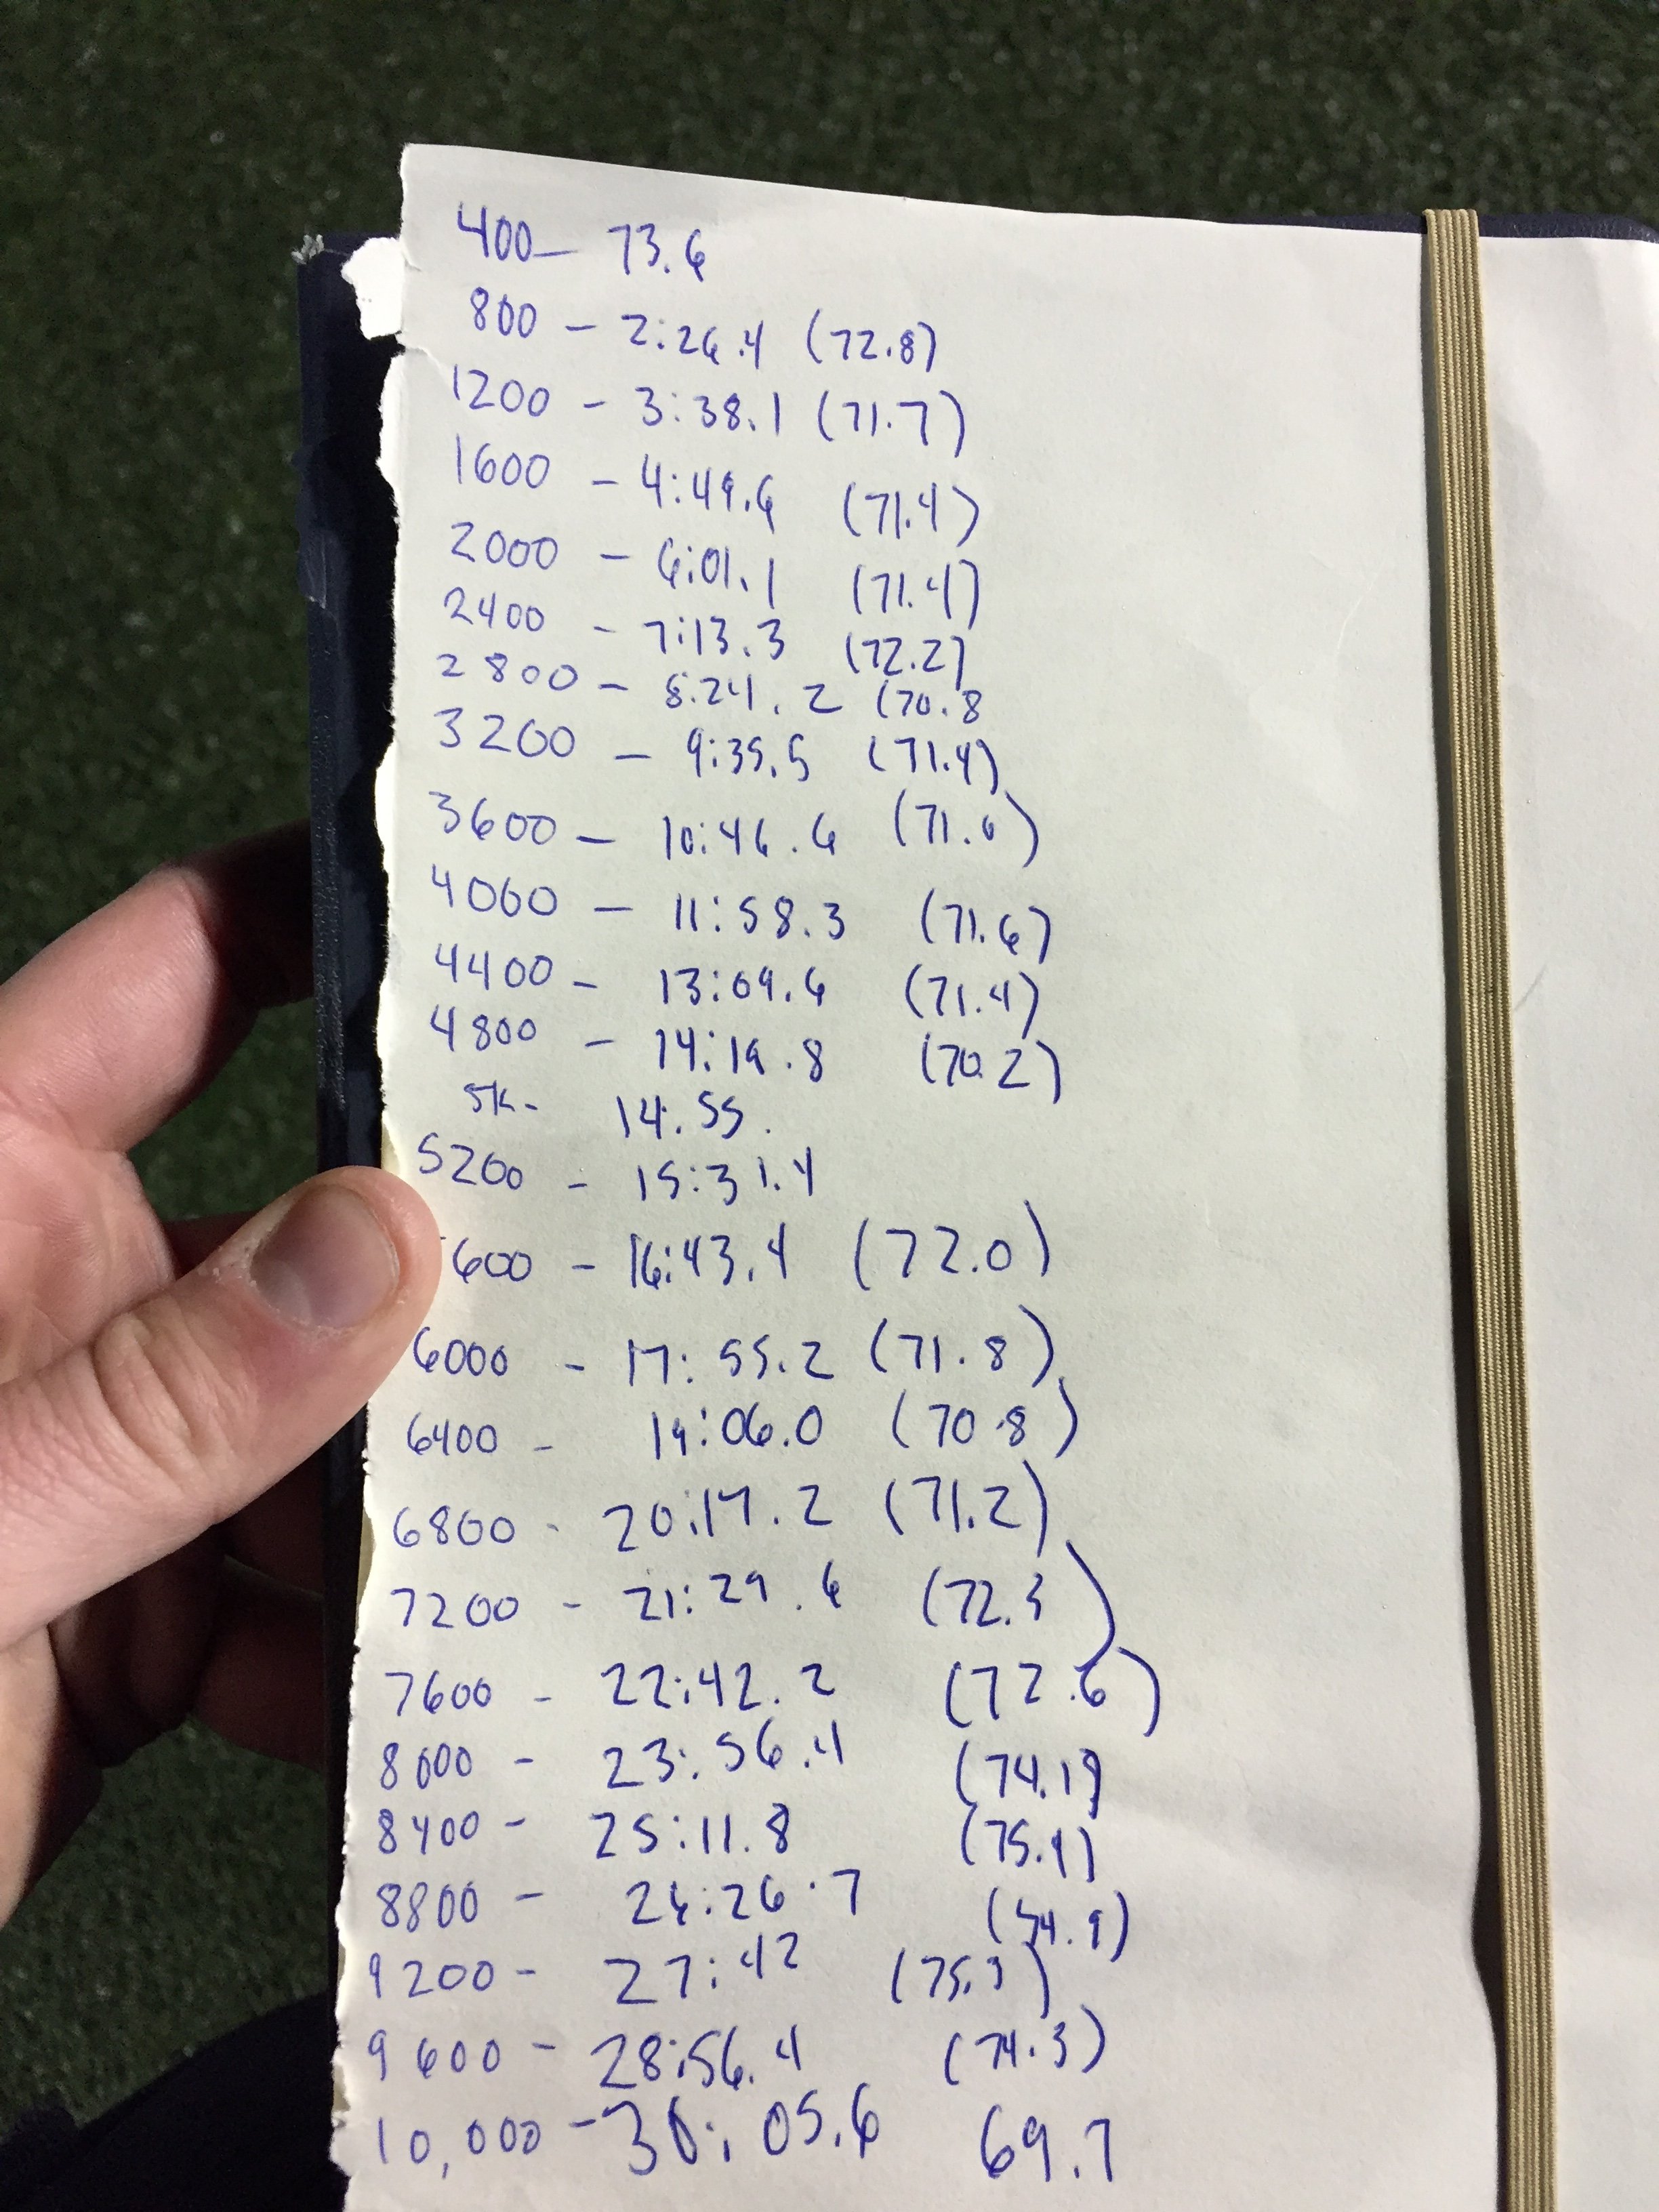 400 - 73.6
800 - 2:26.4 (72.8)
1200 - 3:38.1 (71.7)
1600 - 4:49.6 (71.4)
2000 - 6:01.1 (71.4)
2400 - 7:13.3 (72.2)
2800 - 8:24.2 (70.8
3200 - 9:35.5 (71.4)
3600 - 10:46.6 (71.0)
4000 - 11:58.3 (71.6)
4400 - 13:09.6 (71.4)
4800 - 14:19.8 (70.2)
5k - 14:55.
5200 - 15:31.4
600 - 16:43.4 (72.0)
6000 - 17:55.2 (71.8)
6400 - 19:06.0 (70.8)
6800 - 20:17.2 (71.2)
7200 - 21:29.6 (72.3)
7600 - 22:42.2 (72.6)
8000 - 23:56.4 (74.1)
8400 - 25:11.8
8800 - 26:26.7
9200 - 27:42 (75.3)
9600 - 28:56.4 (74.3)
10,000 - 30:05.6